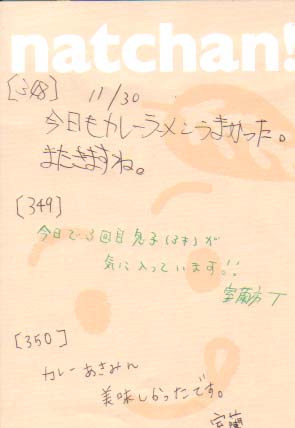 natchan!
[348] 11/30
今日もカレーラーメンうまかった。
またきますね。
[349]
今日で3回目息子(3才)が
気に入っています!!
室蘭市 T
[350]
カレーあきみん
美味しかったです。
室蘭